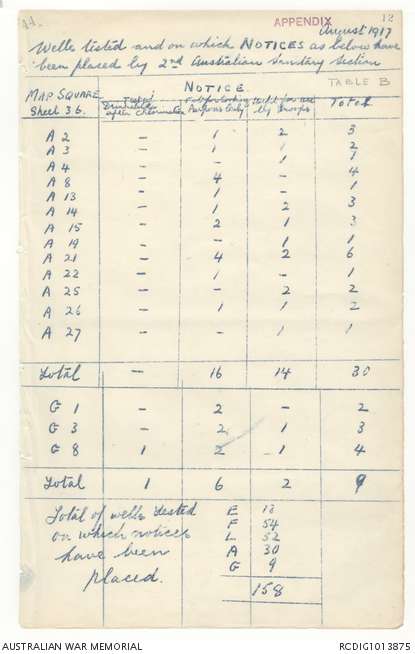 44.
APPENDIX
12
August 1917
Wells tested and on which NOTICES as below have
been placed by 2nd Australian Sanitary Section
TABLE B
MAP SQUARE Sheet 36. NOTICE. Total
Drinkable after Chlorination Purposes Only Unfit for use by troops
A 2 – 1 2 3
A 3 – 1 1 2
A 4 – – 1 1
A 8 – 4 – 4
A 13 – 1 – 1
A 14 – 1 2 3
A 15 – 2 1 3
A 19 – – 1 1
A 21 – 4 2 6
A 22 – 1 – 1
A 25 – – 2 2
A 26 – 1 1 2
A 27 – – 1 1
Total – 16 14 30
G 1 – 2 – 2
G 3 – 2 1 3
G 8 1 2 1 4
Total 1 6 2 9
Total of wells tested
on which notices
have been
placed.
E 13
F 54
L 52
A 30
G 9
158
AUSTRALIAN WAR MEMORIAL
RCDIG1013875